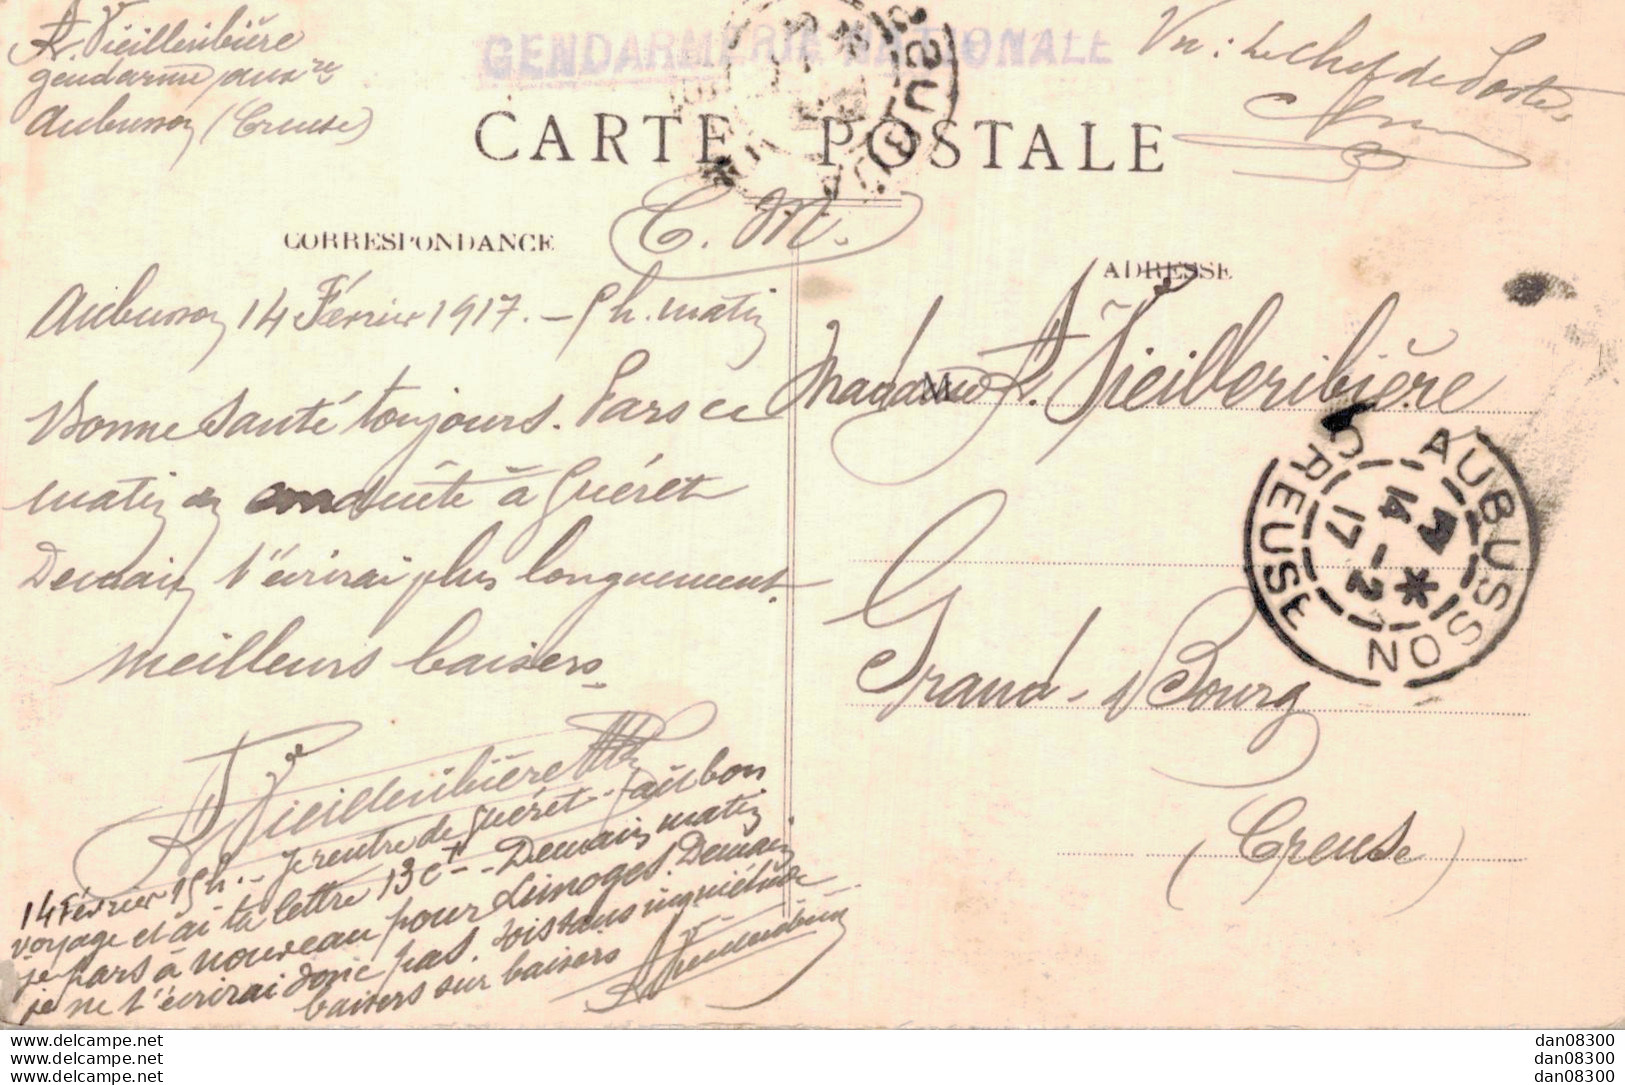 A. Vieilleribière
gendarme auxre
Aubusson (Creuse)
GENDARMERIE NATIONALE
Vu : Le Chef de Poste,
CARTE POSTALE
C. M.
CORRESPONDANCE
ADRESSE
Aubusson 14 Février 1917. – 9h. matin
Bonne santé toujours. Pars ce
matin en conduite à Guéret
Demain t'écrirai plus longuement.
Meilleurs baisers
A Vieilleribière
14 Février 19h. – Je rentre de Guéret. – fait bon
voyage et ai ta lettre 13 ct – Demain matin
je pars à nouveau pour Limoges. Demain
je ne t'écrirai donc pas. Sois sans inquiétude
baisers sur baisers
A Vieilleribière
M
Madame A. Vieilleribière
Grand-Bourg
(Creuse)
AUBUSSON
CREUSE
14 -2
17
AUBUSSON
dan08300
dan08300
dan08300
www.delcampe.net
www.delcampe.net
www.delcampe.net